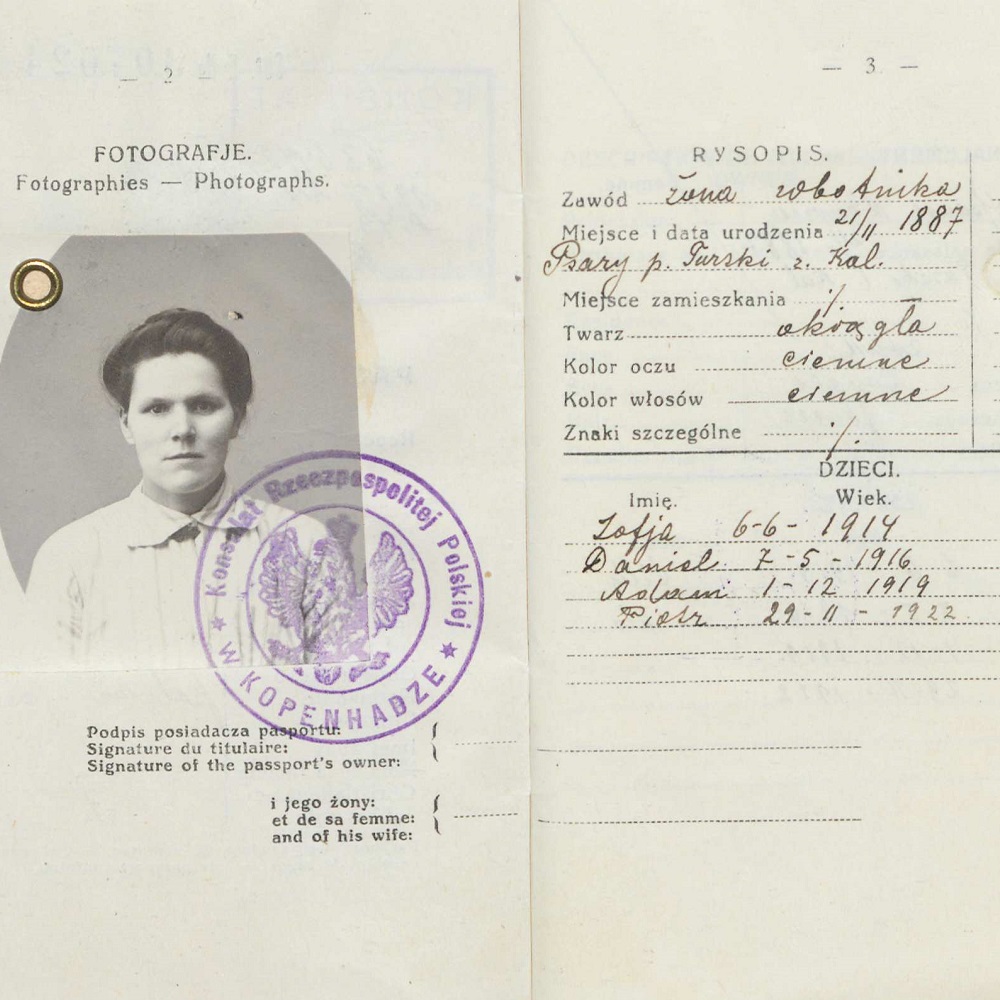 — 2 —
FOTOGRAFJE.
Fotographies — Photographs.
Konsulat Rzeczpospolitej Polskiej
* W KOPENHADZE *
Podpis posiadacza pasportu:
Signature du titulaire:
Signature of the passport's owner:
i jego żony:
et de sa femme:
and of his wife:
— 3 —
RYSOPIS.
Zawód żona robotnika
Miejsce i data urodzenia 21/II 1887
Psary p. Turski z. Kal.
Miejsce zamieszkania ./.
Twarz okrągła
Kolor oczu ciemne
Kolor włosów ciemne
Znaki szczególne ./.
DZIECI.
Imię. Wiek.
Zofja 6-6- 1914
Daniel 7-5-1916
Adam 1-12 1919
Piotr 29-11-1922.